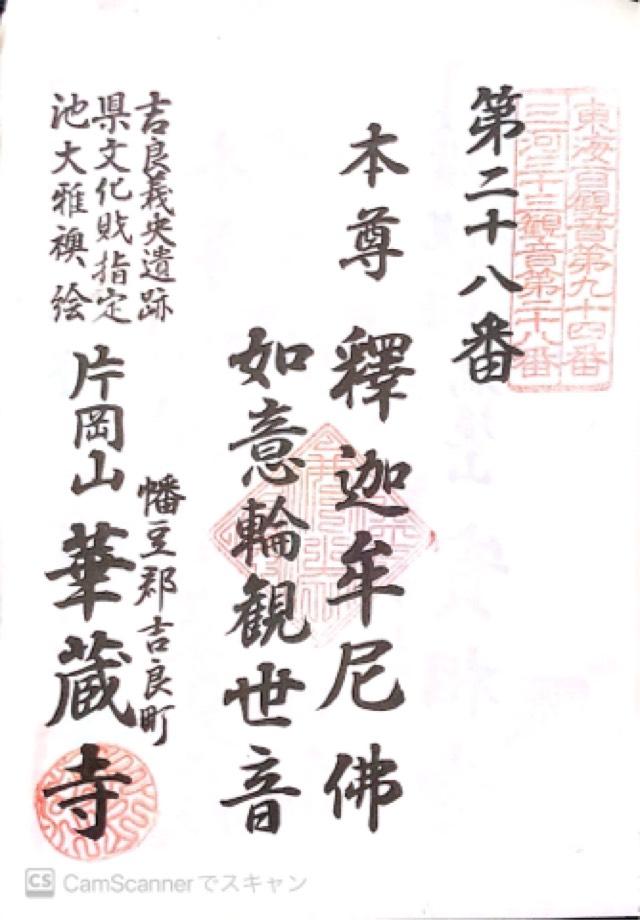 東海百観音第九十四番
三河三十三観音第二十八番
第二十八番
本尊 釋迦牟尼佛
如意輪観世音
幡豆郡吉良町
片岡山 華蔵寺
吉良義央遺跡
県文化財指定
池大雅襖絵
CS CamScannerでスキャン